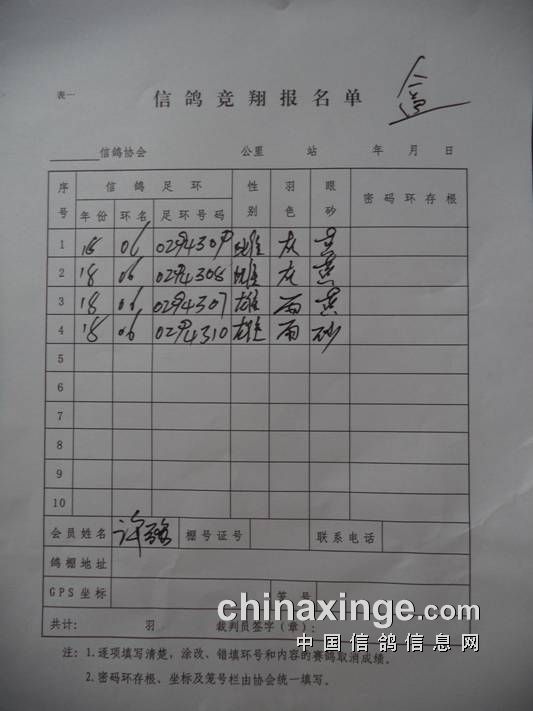 表一
信鸽竞翔报名单
盒
信鸽协会 公里 站 年 月 日
序号 信鸽足环 性别 羽色 眼砂 密码环存根
年份 环名 足环号码
1 18 06 0294309 雄 灰 黄
2 18 06 0294308 雄 灰 黄
3 18 06 0294307 雄 雨 黄
4 18 06 0294310 雄 雨 砂
5
6
7
8
9
10
会员姓名 许 棚号证号 联系电话
鸽棚地址
GPS坐标 笼号
共计： 羽 裁判员签字（章）：
chinaxinge.com
中国信鸽信息网
注：1.逐项填写清楚，涂改、错填环号和内容的赛鸽取消成绩。
2.密码环存根、坐标及笼号栏由协会统一填写。